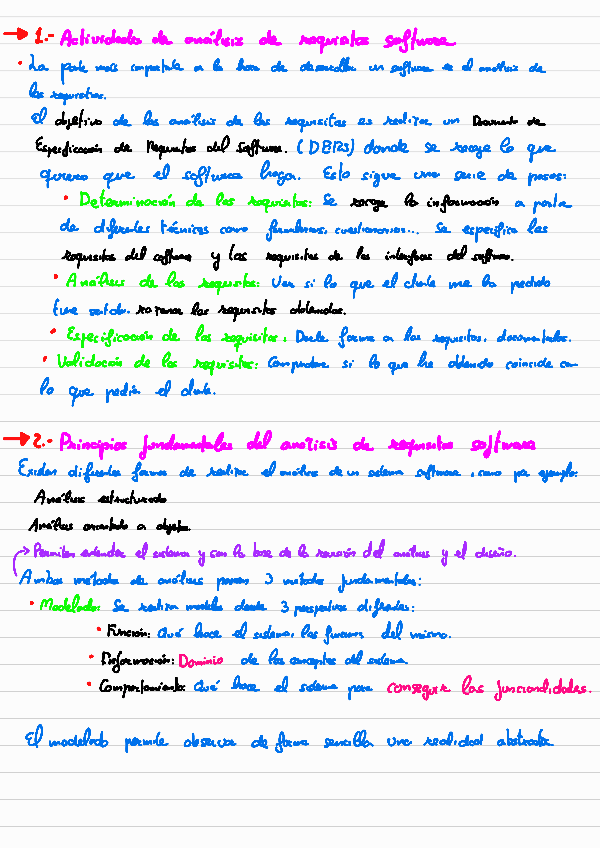 → 1.- Actividades de análisis de requisitos software
• La parte más importante a la hora de desarrollar un software es el análisis de
los requisitos.
El objetivo de los análisis de los requisitos es realizar un Documento de
Especificación de Requisitos del Software. (DERS) donde se recoge lo que
quiero que el software haga. Esto sigue una serie de pasos:
• Determinación de los requisitos: Se recoge la información a partir
de diferentes técnicas como formularios, cuestionarios... Se especifica los
requisitos del software y los requisitos de las interfaces del software.
• Análisis de los requisitos: Ver si lo que el cliente me ha pedido
tiene sentido. los requisitos obtenidos.
• Especificación de los requisitos: Darle forma a los requisitos, documentarlos.
• Validación de los requisitos: Comprobar si lo que he obtenido coincide con
lo que pedía el cliente.
→ 2.- Principios fundamentales del análisis de requisitos software
Existen diferentes formas de realizar el análisis de un sistema software, como por ejemplo:
Análisis estructurado
Análisis orientado a objetos.
→ Permiten entender el sistema y son la base de la revisión del análisis y el diseño.
Ambos métodos de análisis poseen 3 métodos fundamentales:
• Modelado: Se realizan modelos desde 3 perspectivas diferentes:
• Función: Qué hace el sistema, las funciones del mismo.
• Información: Dominio de los conceptos del sistema
• Comportamiento: Qué hace el sistema para conseguir las funcionalidades.
El modelado permite observar de forma sencilla una realidad abstracta